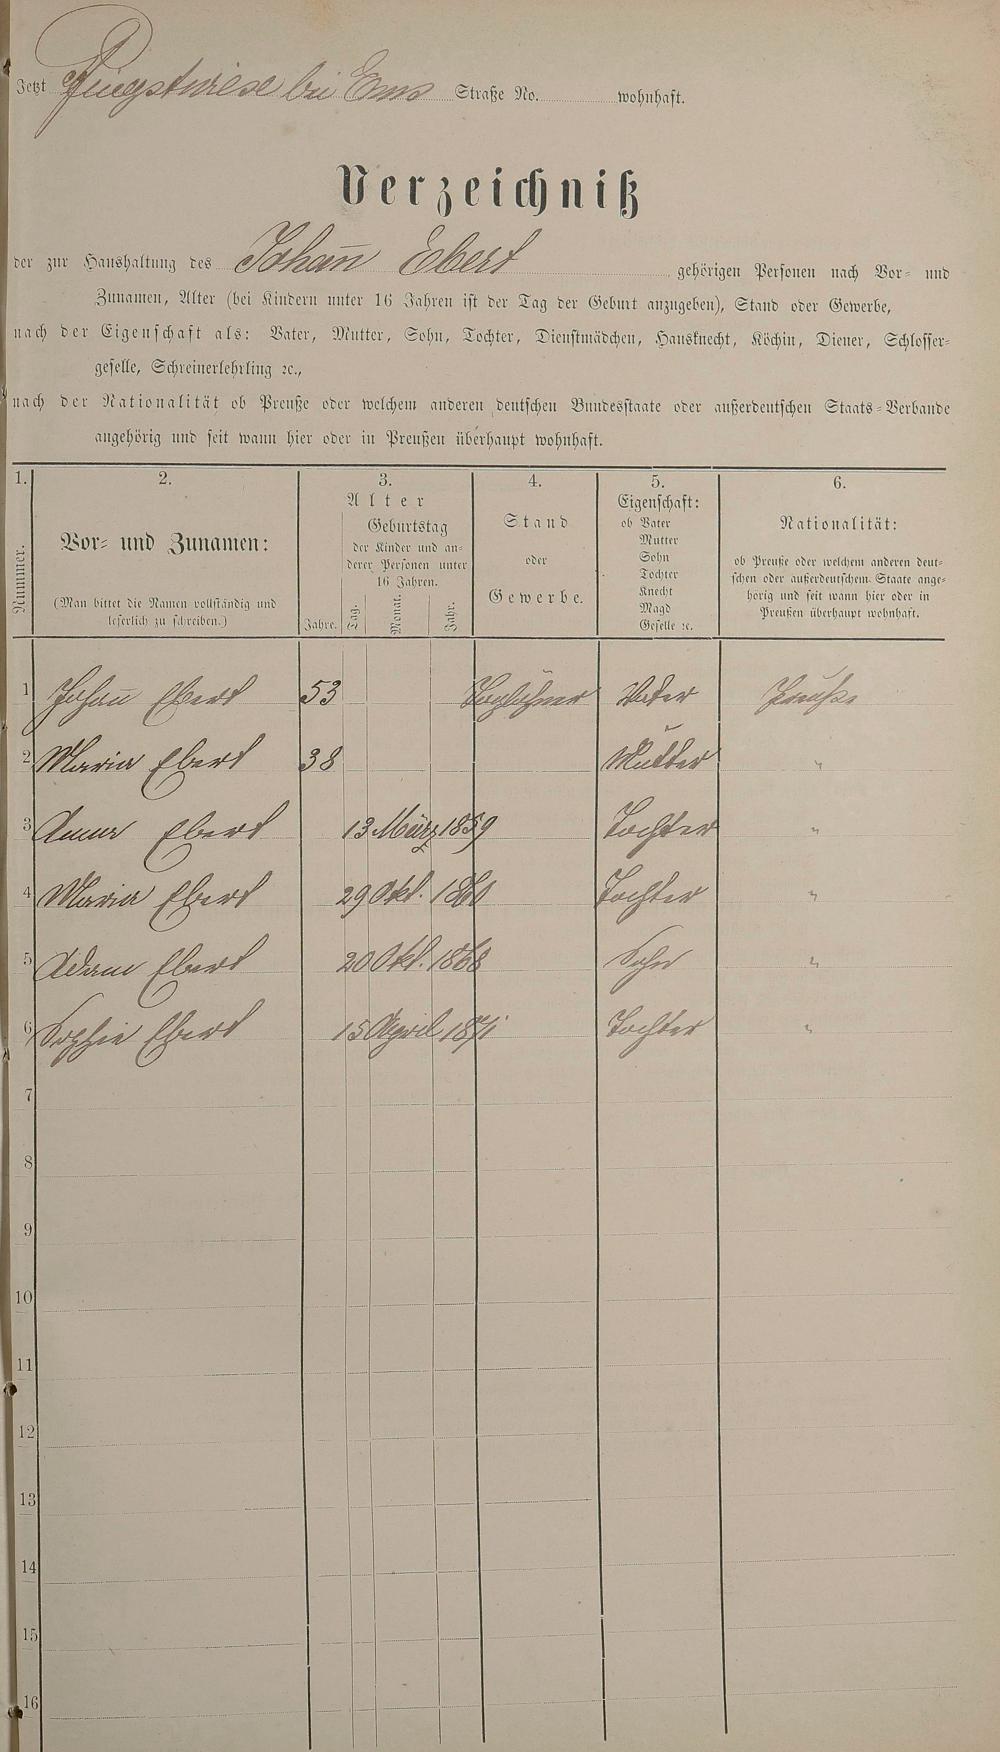 Jetzt Pfingstwiese bei Ems Straße No. wohnhaft.
Verzeichniß
der zur Haushaltung des Johañ Ebert gehörigen Personen nach Vor- und
Zunamen, Alter (bei Kindern unter 16 Jahren ist der Tag der Geburt anzugeben), Stand oder Gewerbe,
nach der Eigenschaft als: Vater, Mutter, Sohn, Tochter, Dienstmädchen, Hausknecht, Köchin, Diener, Schlosser-
geselle, Schreinerlehrling ꝛc.,
nach der Nationalität ob Preuße oder welchem anderen deutschen Bundesstaate oder außerdeutschen Staats-Verbande
angehörig und seit wann hier oder in Preußen überhaupt wohnhaft.
1. 2. 3. 4. 5. 6.
Nummer.
Vor- und Zunamen:
(Man bittet die Namen vollständig und
leserlich zu schreiben.)
Alter
Jahre.
Geburtstag
der Kinder und an-
derer Personen unter
16 Jahren.
Tag. Monat. Jahr.
Stand
oder
Gewerbe.
Eigenschaft:
ob Vater
Mutter
Sohn
Tochter
Knecht
Magd
Geselle ꝛc.
Nationalität:
ob Preuße oder welchem anderen deut-
schen oder außerdeutschem Staate ange-
hörig und seit wann hier oder in
Preußen überhaupt wohnhaft.
1 Johañ Ebert 53 Taglöhner Vater Preuße
2 Maria Ebert 38 Mutter "
3 Anna Ebert 13 März 1859 Tochter "
4 Maria Ebert 29 Okt. 1860 Tochter "
5 Adam Ebert 20 Okt. 1868 Sohn "
6 Sophie Ebert 15 April 1871 Tochter "
7
8
9
10
11
12
13
14
15
16